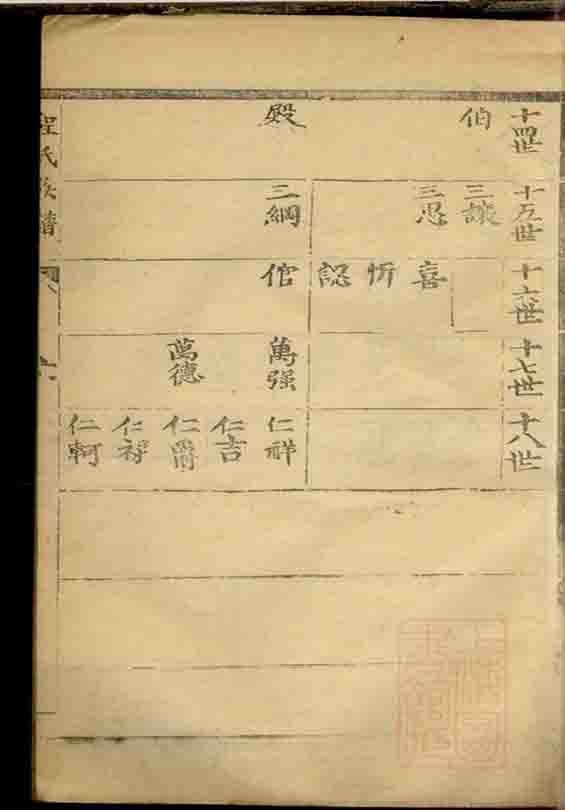 十四世
十五世
十六世
十七世
十八世
伯
三讓
三思
喜
忻
認
殿
三綱
倌
萬强
仁祥
仁吉
萬德
仁爵
仁
仁軻
程氏族譜